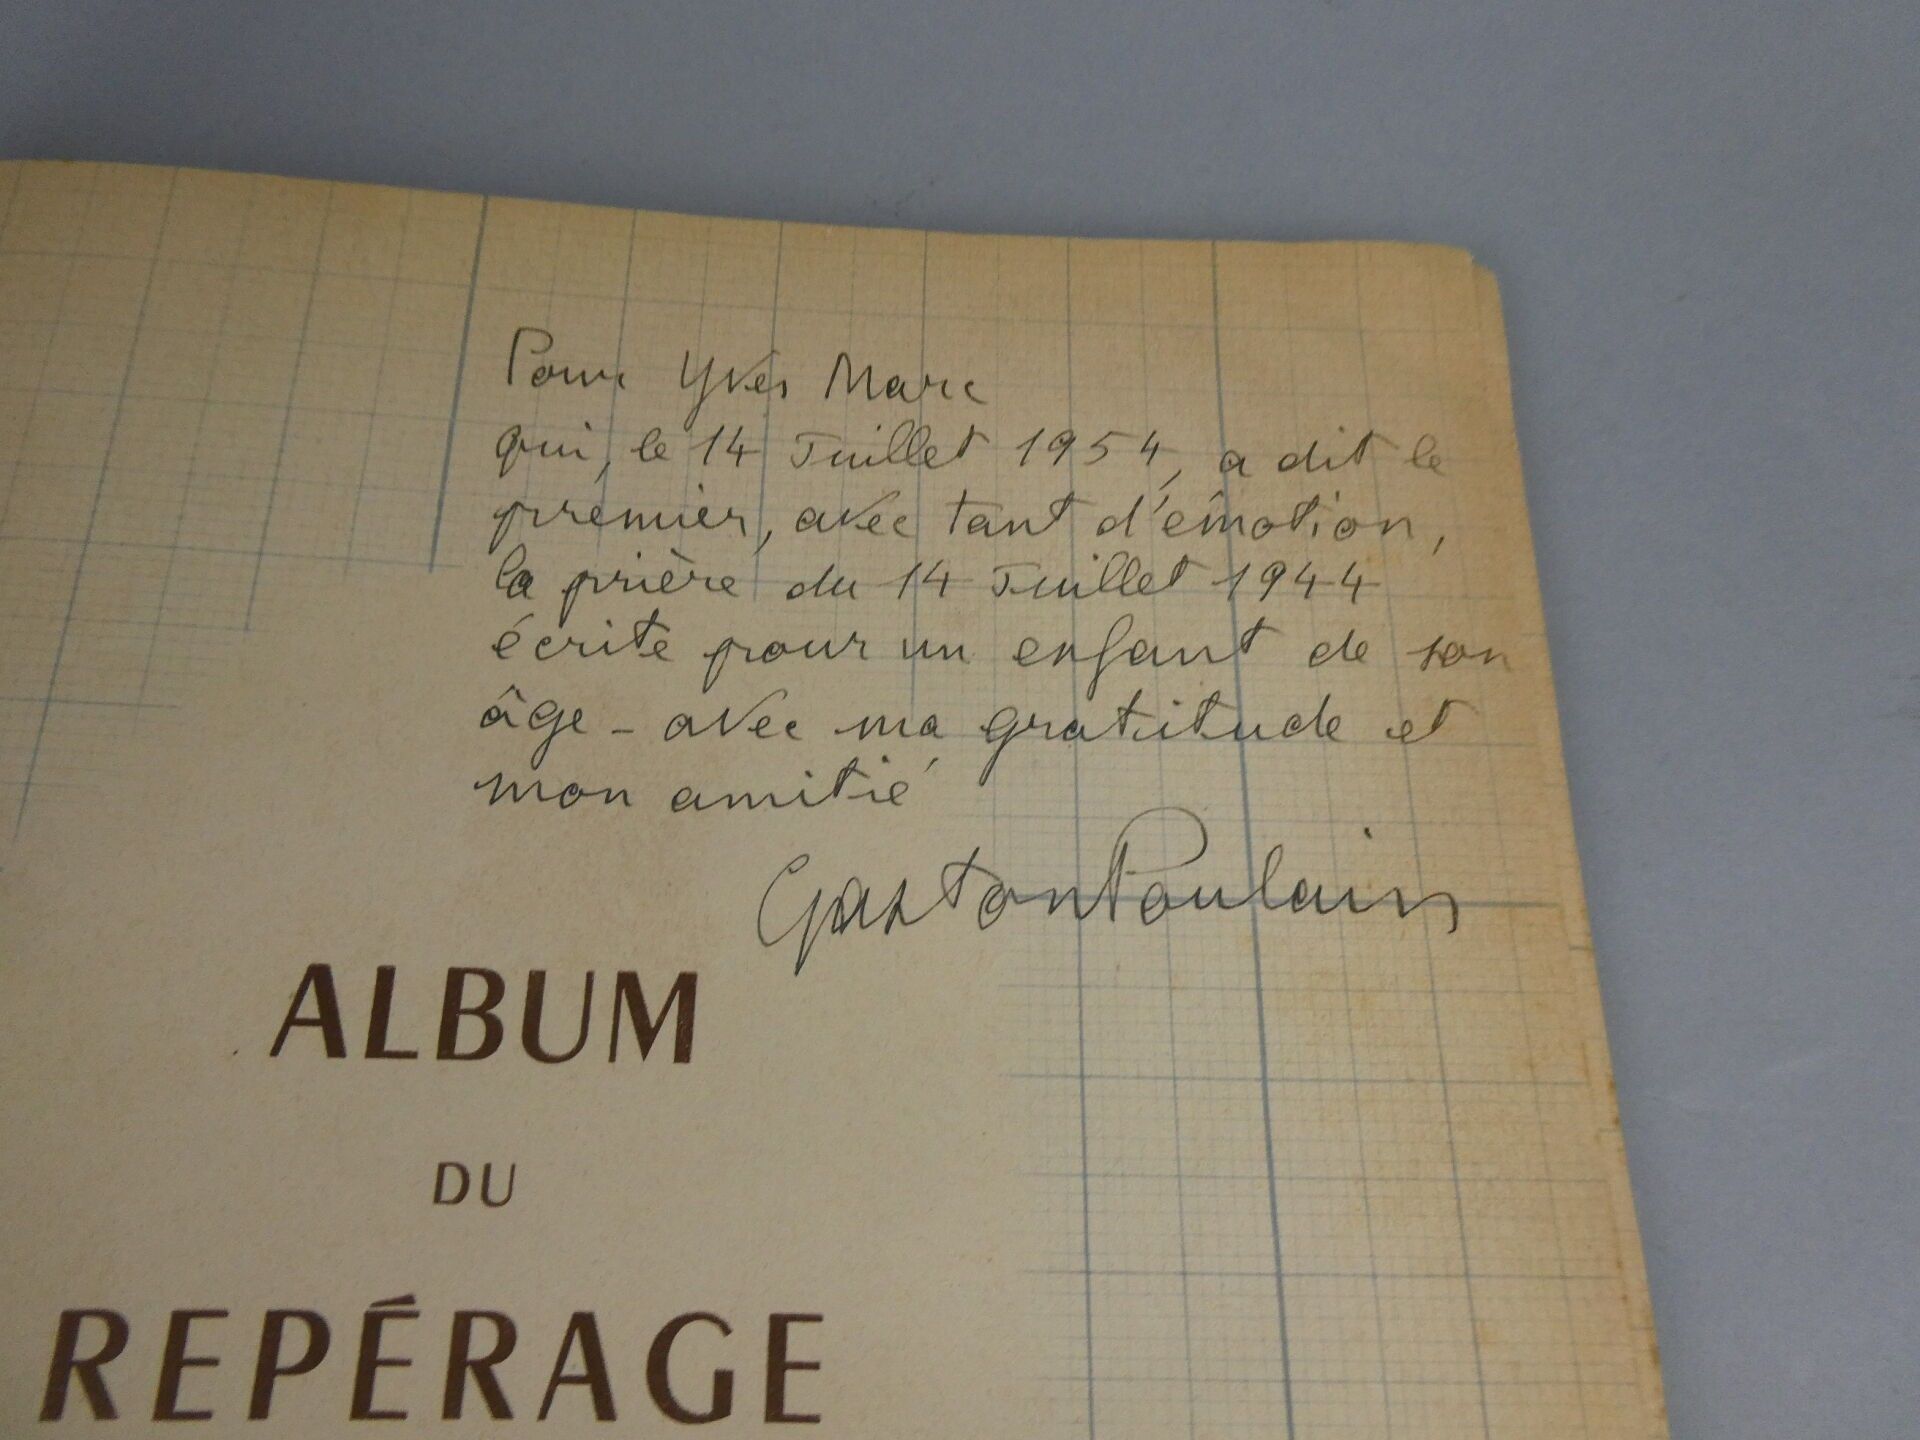 Pour Yves Marc
qui, le 14 Juillet 1954, a dit le
premier, avec tant d'émotion,
la prière du 14 Juillet 1944
écrite pour un enfant de son
âge - avec ma gratitude et
mon amitié
Gaston Poulain
ALBUM
DU
REPÉRAGE